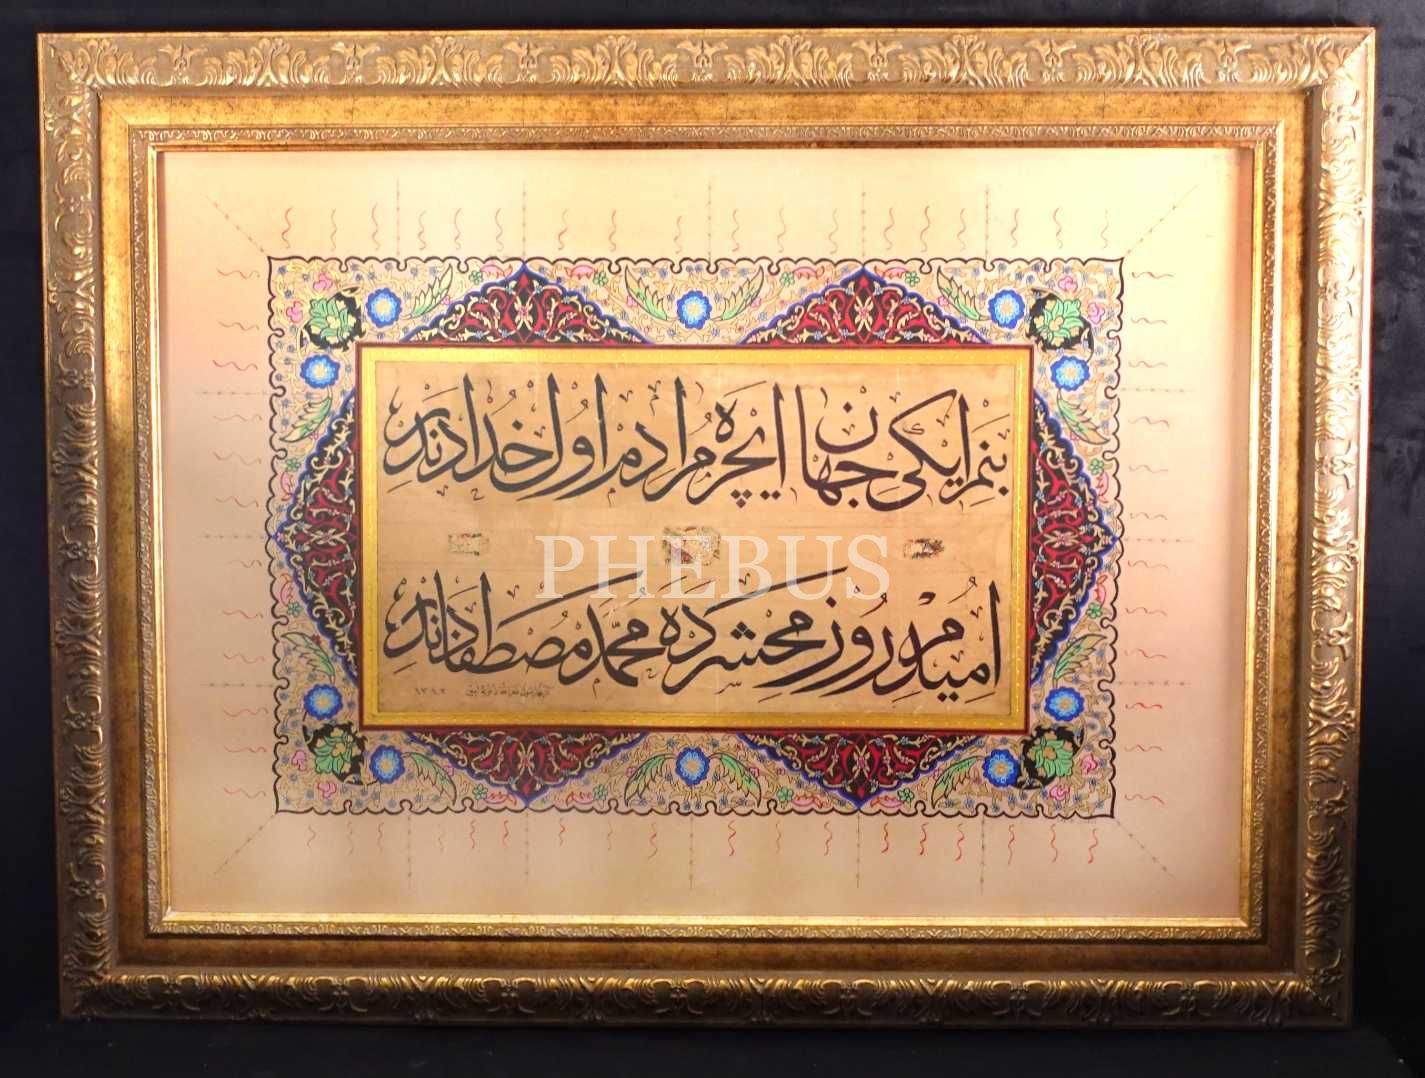 بنم ايكى جهان ايچره مرادم اول خدادندر
PHEBUS
اميدم روز محشرده محمد مصطفادندر
١٣١٢